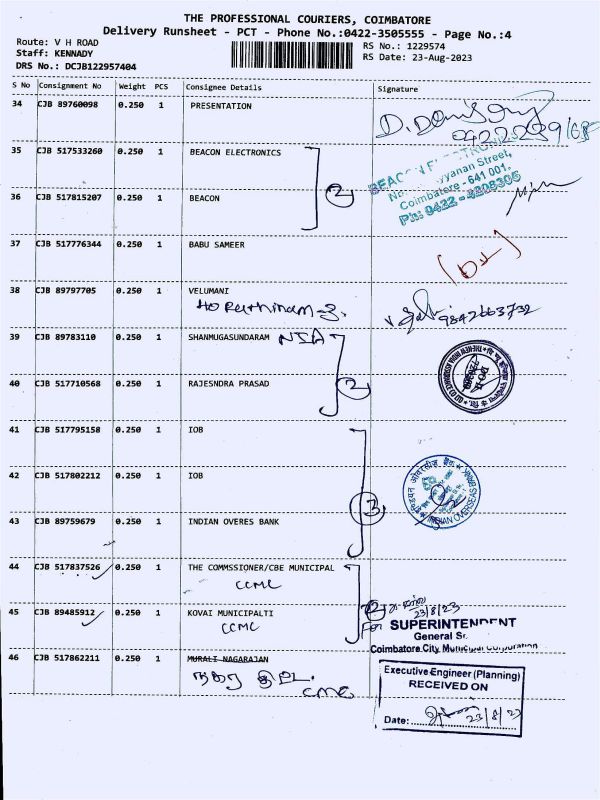 THE PROFESSIONAL COURIERS, COIMBATORE
Delivery Runsheet - PCT - Phone No.:0422-3505555 - Page No.:4
Route: V H ROAD
Staff: KENNADY
DRS No.: DCJB122957404
RS No.: 1229574
RS Date: 23-Aug-2023
S No Consignment No Weight PCS Consignee Details Signature
34 CJB 89760098 0.250 1 PRESENTATION
35 CJB 517533260 0.250 1 BEACON ELECTRONICS
2
Coimbatore - 641 001.
36 CJB 515815207 0.250 1 BEACON
37 CJB 517776344 0.250 1 BABU SAMEER
38 CJB 89797705 0.250 1 VELUMANI
9842663732
39 CJB 89783110 0.250 1 SHANMUGASUNDARAM NIA
2
40 CJB 517710568 0.250 1 RAJESNDRA PRASAD
41 CJB 517795158 0.250 1 IOB
42 CJB 517802212 0.250 1 IOB
3
INDIAN OVERSEAS BANK
43 CJB 89759679 0.250 1 INDIAN OVERES BANK
44 CJB 517837526 0.250 1 THE COMMSSIONER/CBE MUNICIPAL
CCMC
2
23/8/23
45 CJB 89485912 0.250 1 KOVAI MUNICIPALTI
CCMC
For SUPERINTENDENT
Coimbatore City Municipal Corporation
46 CJB 517862211 0.250 1 MURALI NAGARAJAN
CMC
Executive Engineer (Planning)
RECEIVED ON
Date: 23/8/23